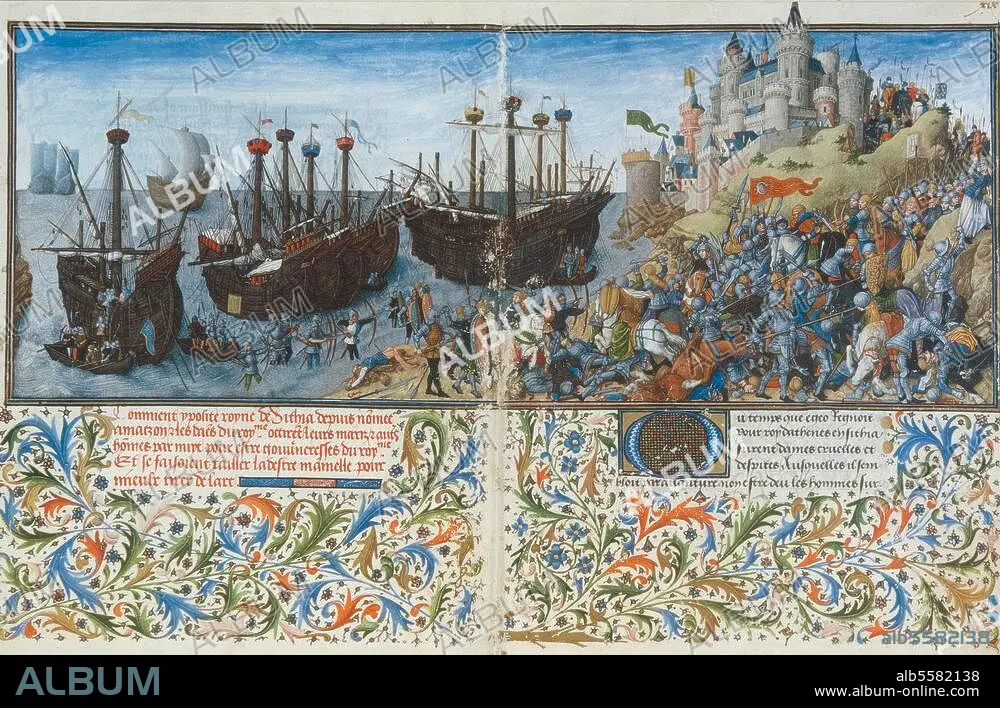 Comment ypolite royne de Sithia depuis nomee
amazon z les dacs du roy.me occiret leurs mariz z aults
hōmes par nuit pour estre gouv̄neresses du roy.me
Et se faisoient tailler la destre mamelle pour
mieulx tirer de l'arc
U temps que egeo regnoit
Pour roy dathenes en sithia
furent dames cruelles et
despites Ausquelles il sem
bloit les hommes sur
ALBUM
alb5582138
ALBUM
alb5582138
www.album-online.com